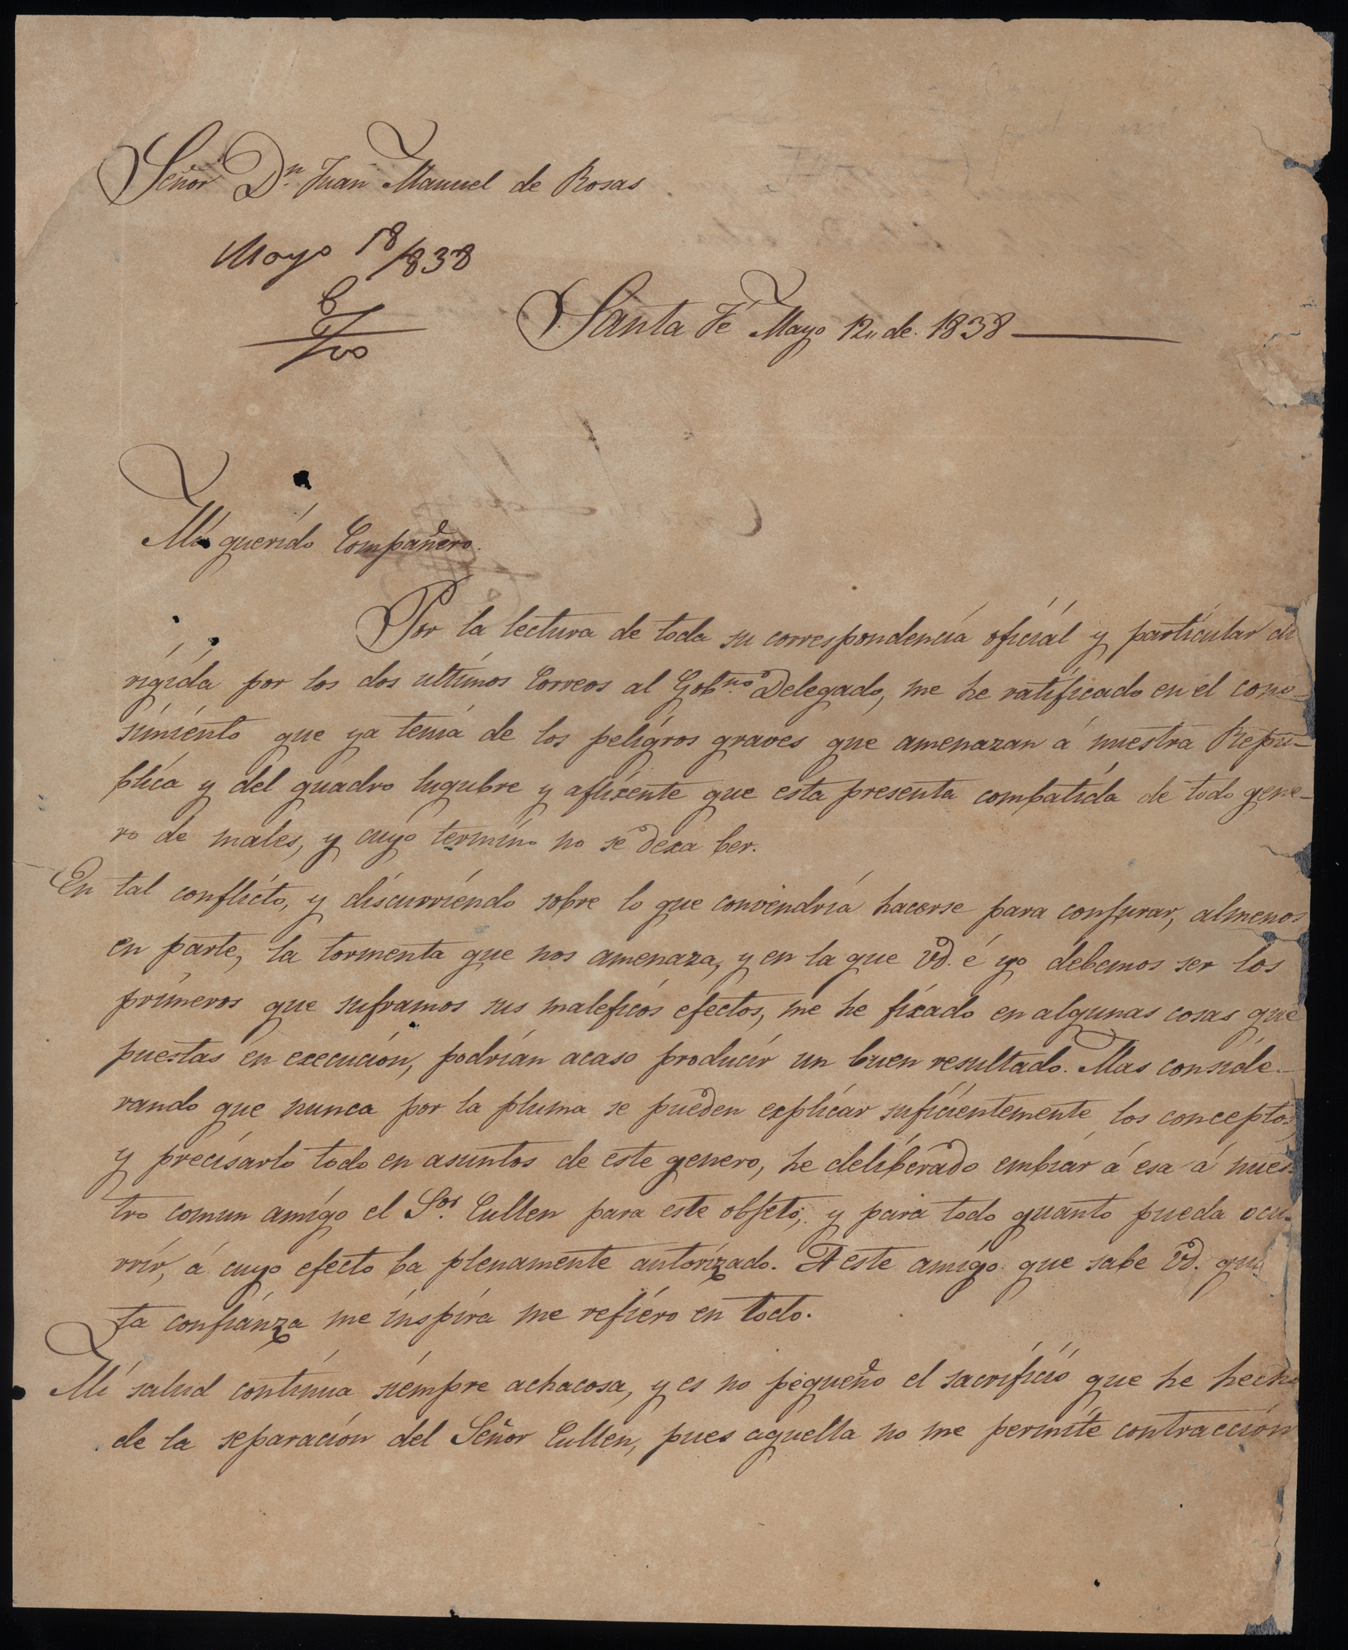 Señor Dn. Juan Manuel de Rosas
Mayo 18/838
Santa Fé Mayo 12,, de 1838
Mi querido Compañero.
Por la lectura de toda su correspondencia oficial y particular di
rigida por los dos ultimos Correos al Gobno. Delegado, me he ratificado en el cono-
simiento que ya tenia de los peligros graves que amenazan á nuestra Repu-
blica y del quadro lugubre y aflixente que esta presenta combatida de todo gene-
ro de males, y cuyo termino no se dexa ber.
En tal conflicto, y discurriendo sobre lo que convendria hacerse para conjurar, almenos
en parte, la tormenta que nos amenaza, y en la que Vd. é yo debemos ser los
primeros que suframos sus maleficos efectos, me he fixado en algunas cosas que
puestas en execución, podrian acaso producir un buen resultado. Mas conside-
rando que nunca por la pluma se pueden explicar suficientemente los conceptos,
y precisarlo todo en asuntos de este genero, he deliberado embiar á esa á nues-
tro comun amigo el Sor. Cullen para este objeto, y para todo quanto pueda ocu-
rrir, á cuyo efecto ba plenamente autorizado. A este amigo que sabe Vd. qu
ta confianza me inspira me refiero en todo.
Mi salud continua siempre achacosa, y es no pequeño el sacrificio que he hecho
de la separación del Señor Cullen, pues aquella no me permite contracción